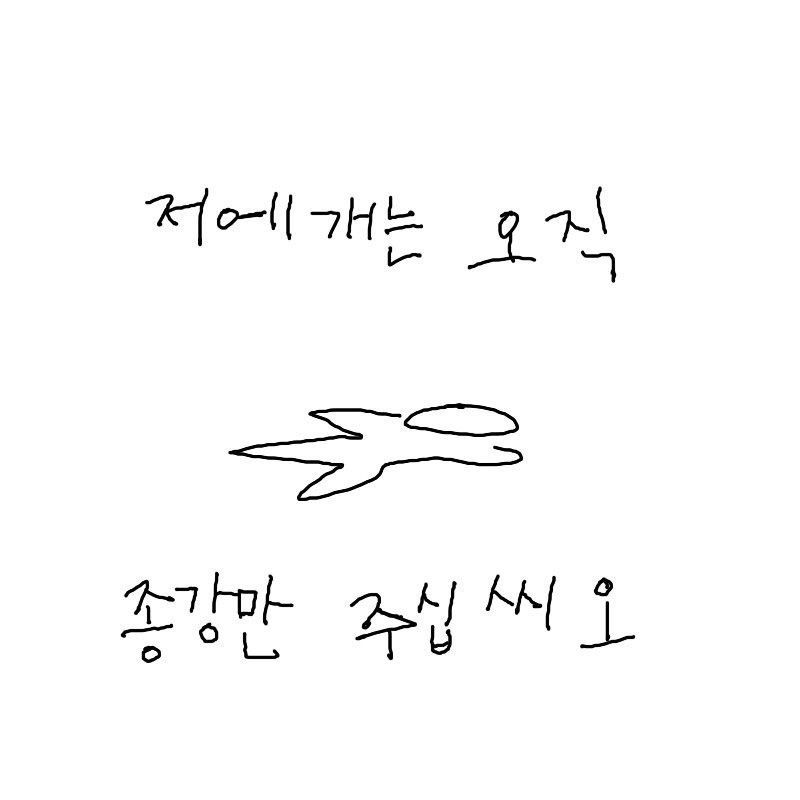 저에개는 오직
종강만 주십씨오